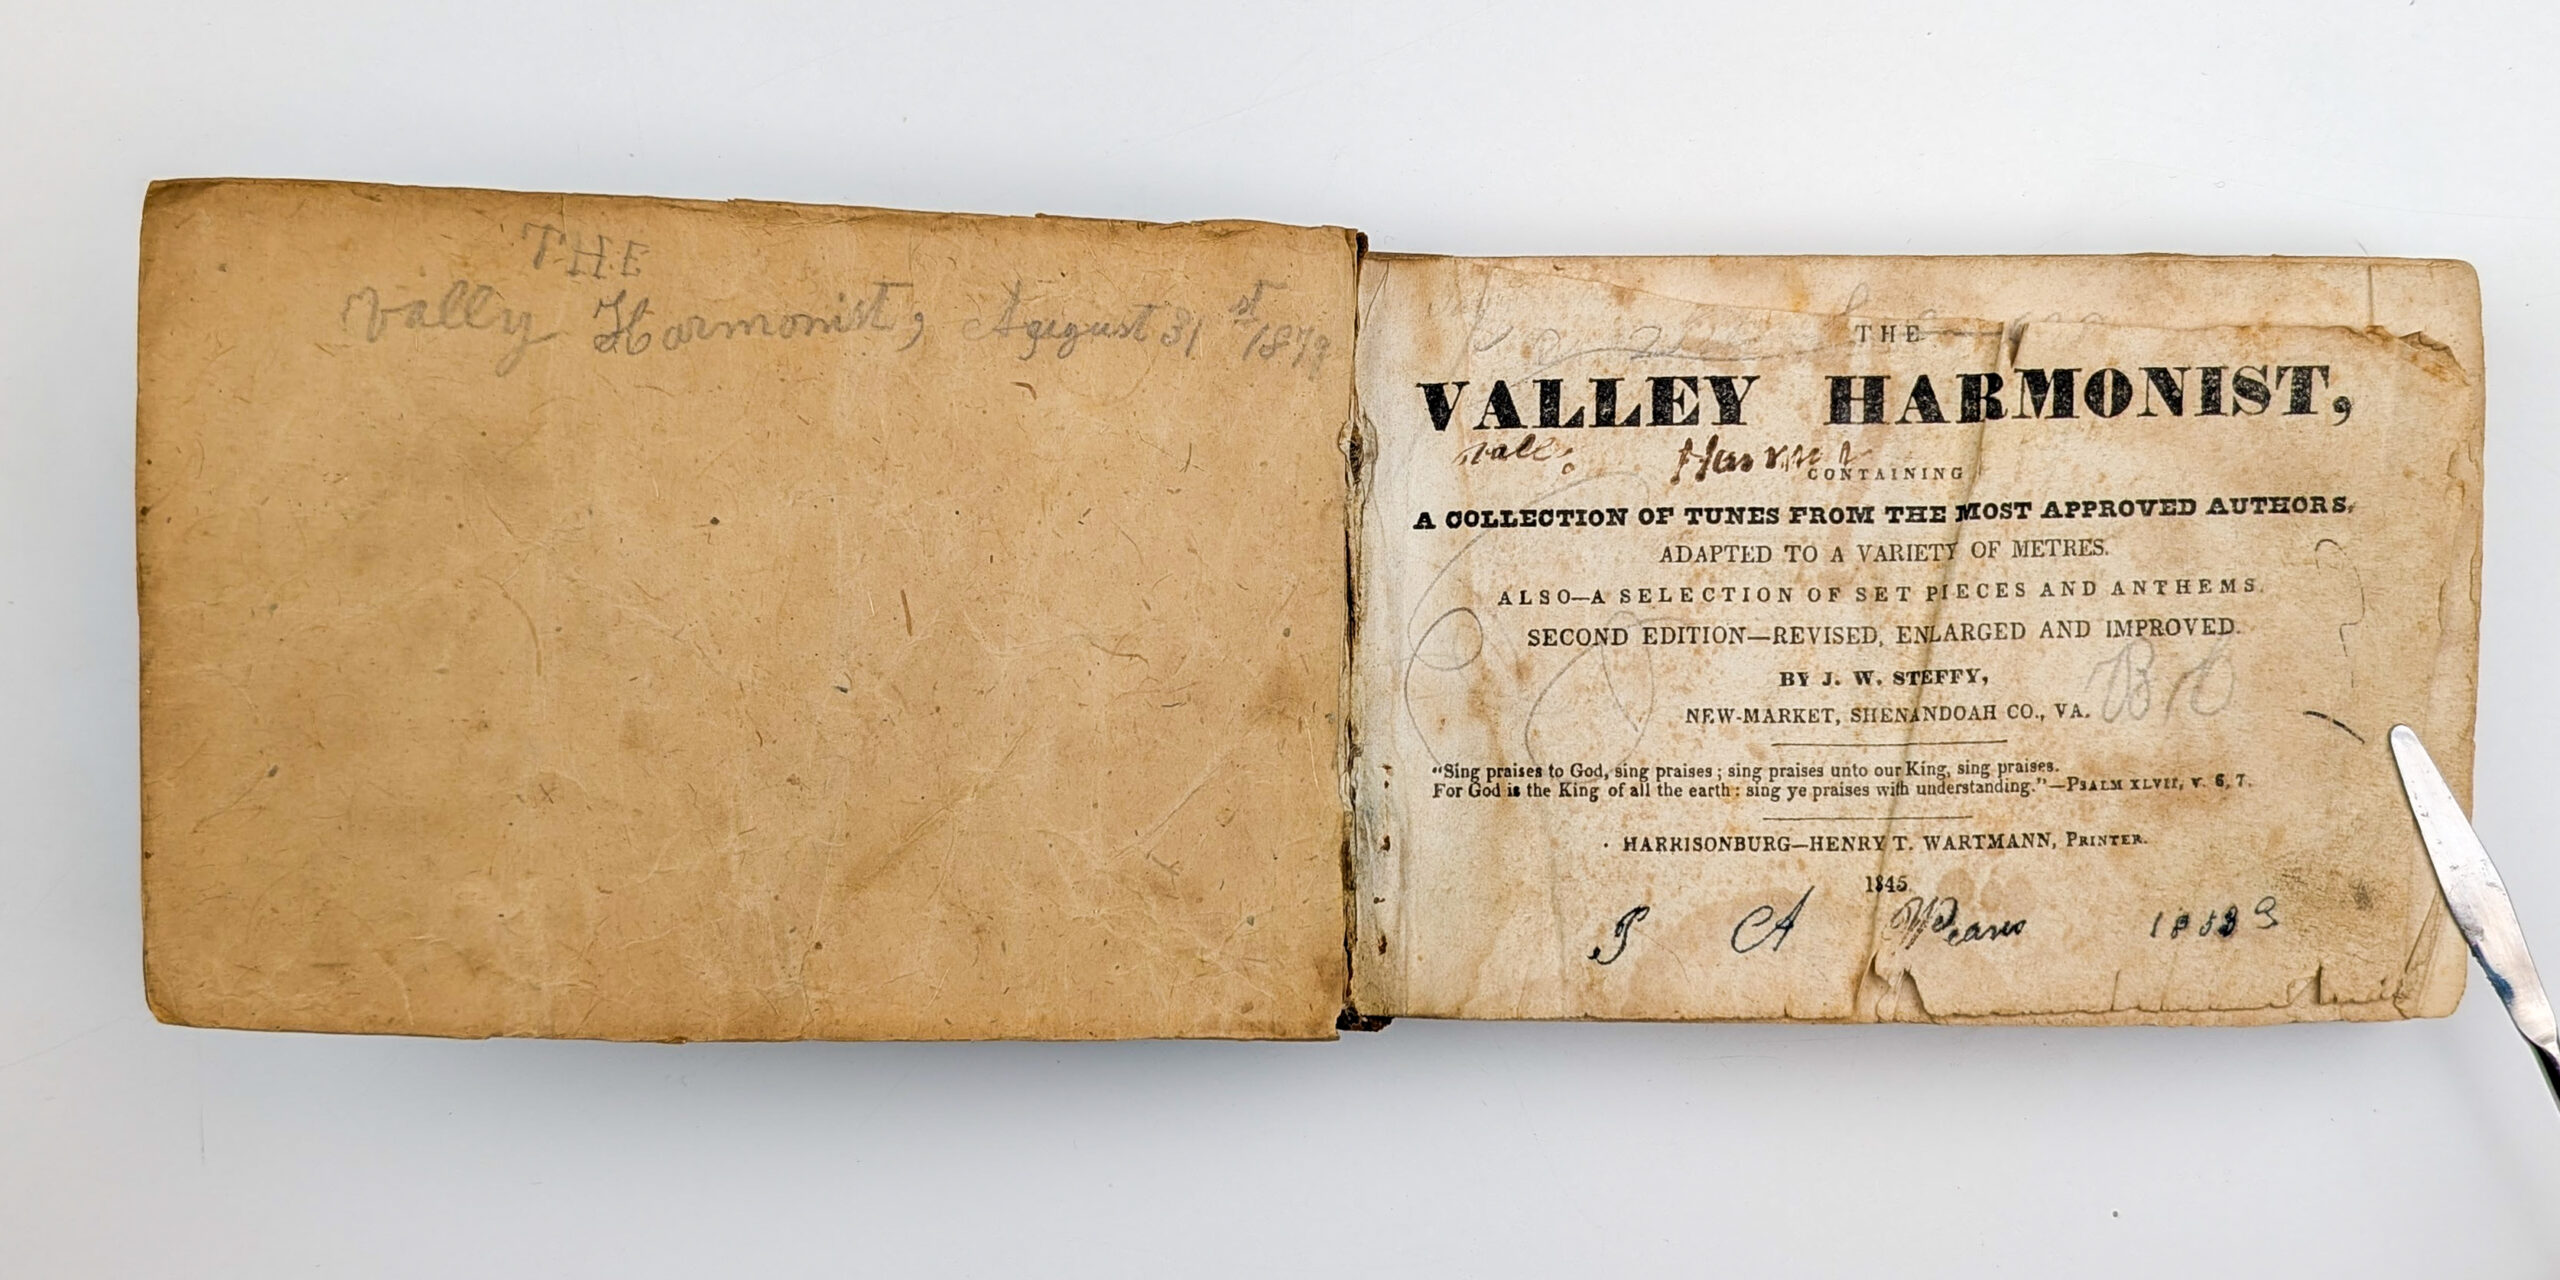 THE
Vally Harmonist, Augugust 31st 1879
THE
VALLEY HARMONIST,
CONTAINING
A COLLECTION OF TUNES FROM THE MOST APPROVED AUTHORS,
ADAPTED TO A VARIETY OF METRES.
ALSO—A SELECTION OF SET PIECES AND ANTHEMS.
SECOND EDITION—REVISED, ENLARGED AND IMPROVED.
BY J. W. STEFFY,
NEW-MARKET, SHENANDOAH CO., VA.
"Sing praises to God, sing praises; sing praises unto our King, sing praises.
For God is the King of all the earth: sing ye praises with understanding."—PSALM XLVII, v. 6, 7.
HARRISONBURG—HENRY T. WARTMANN, PRINTER.
1845.
A